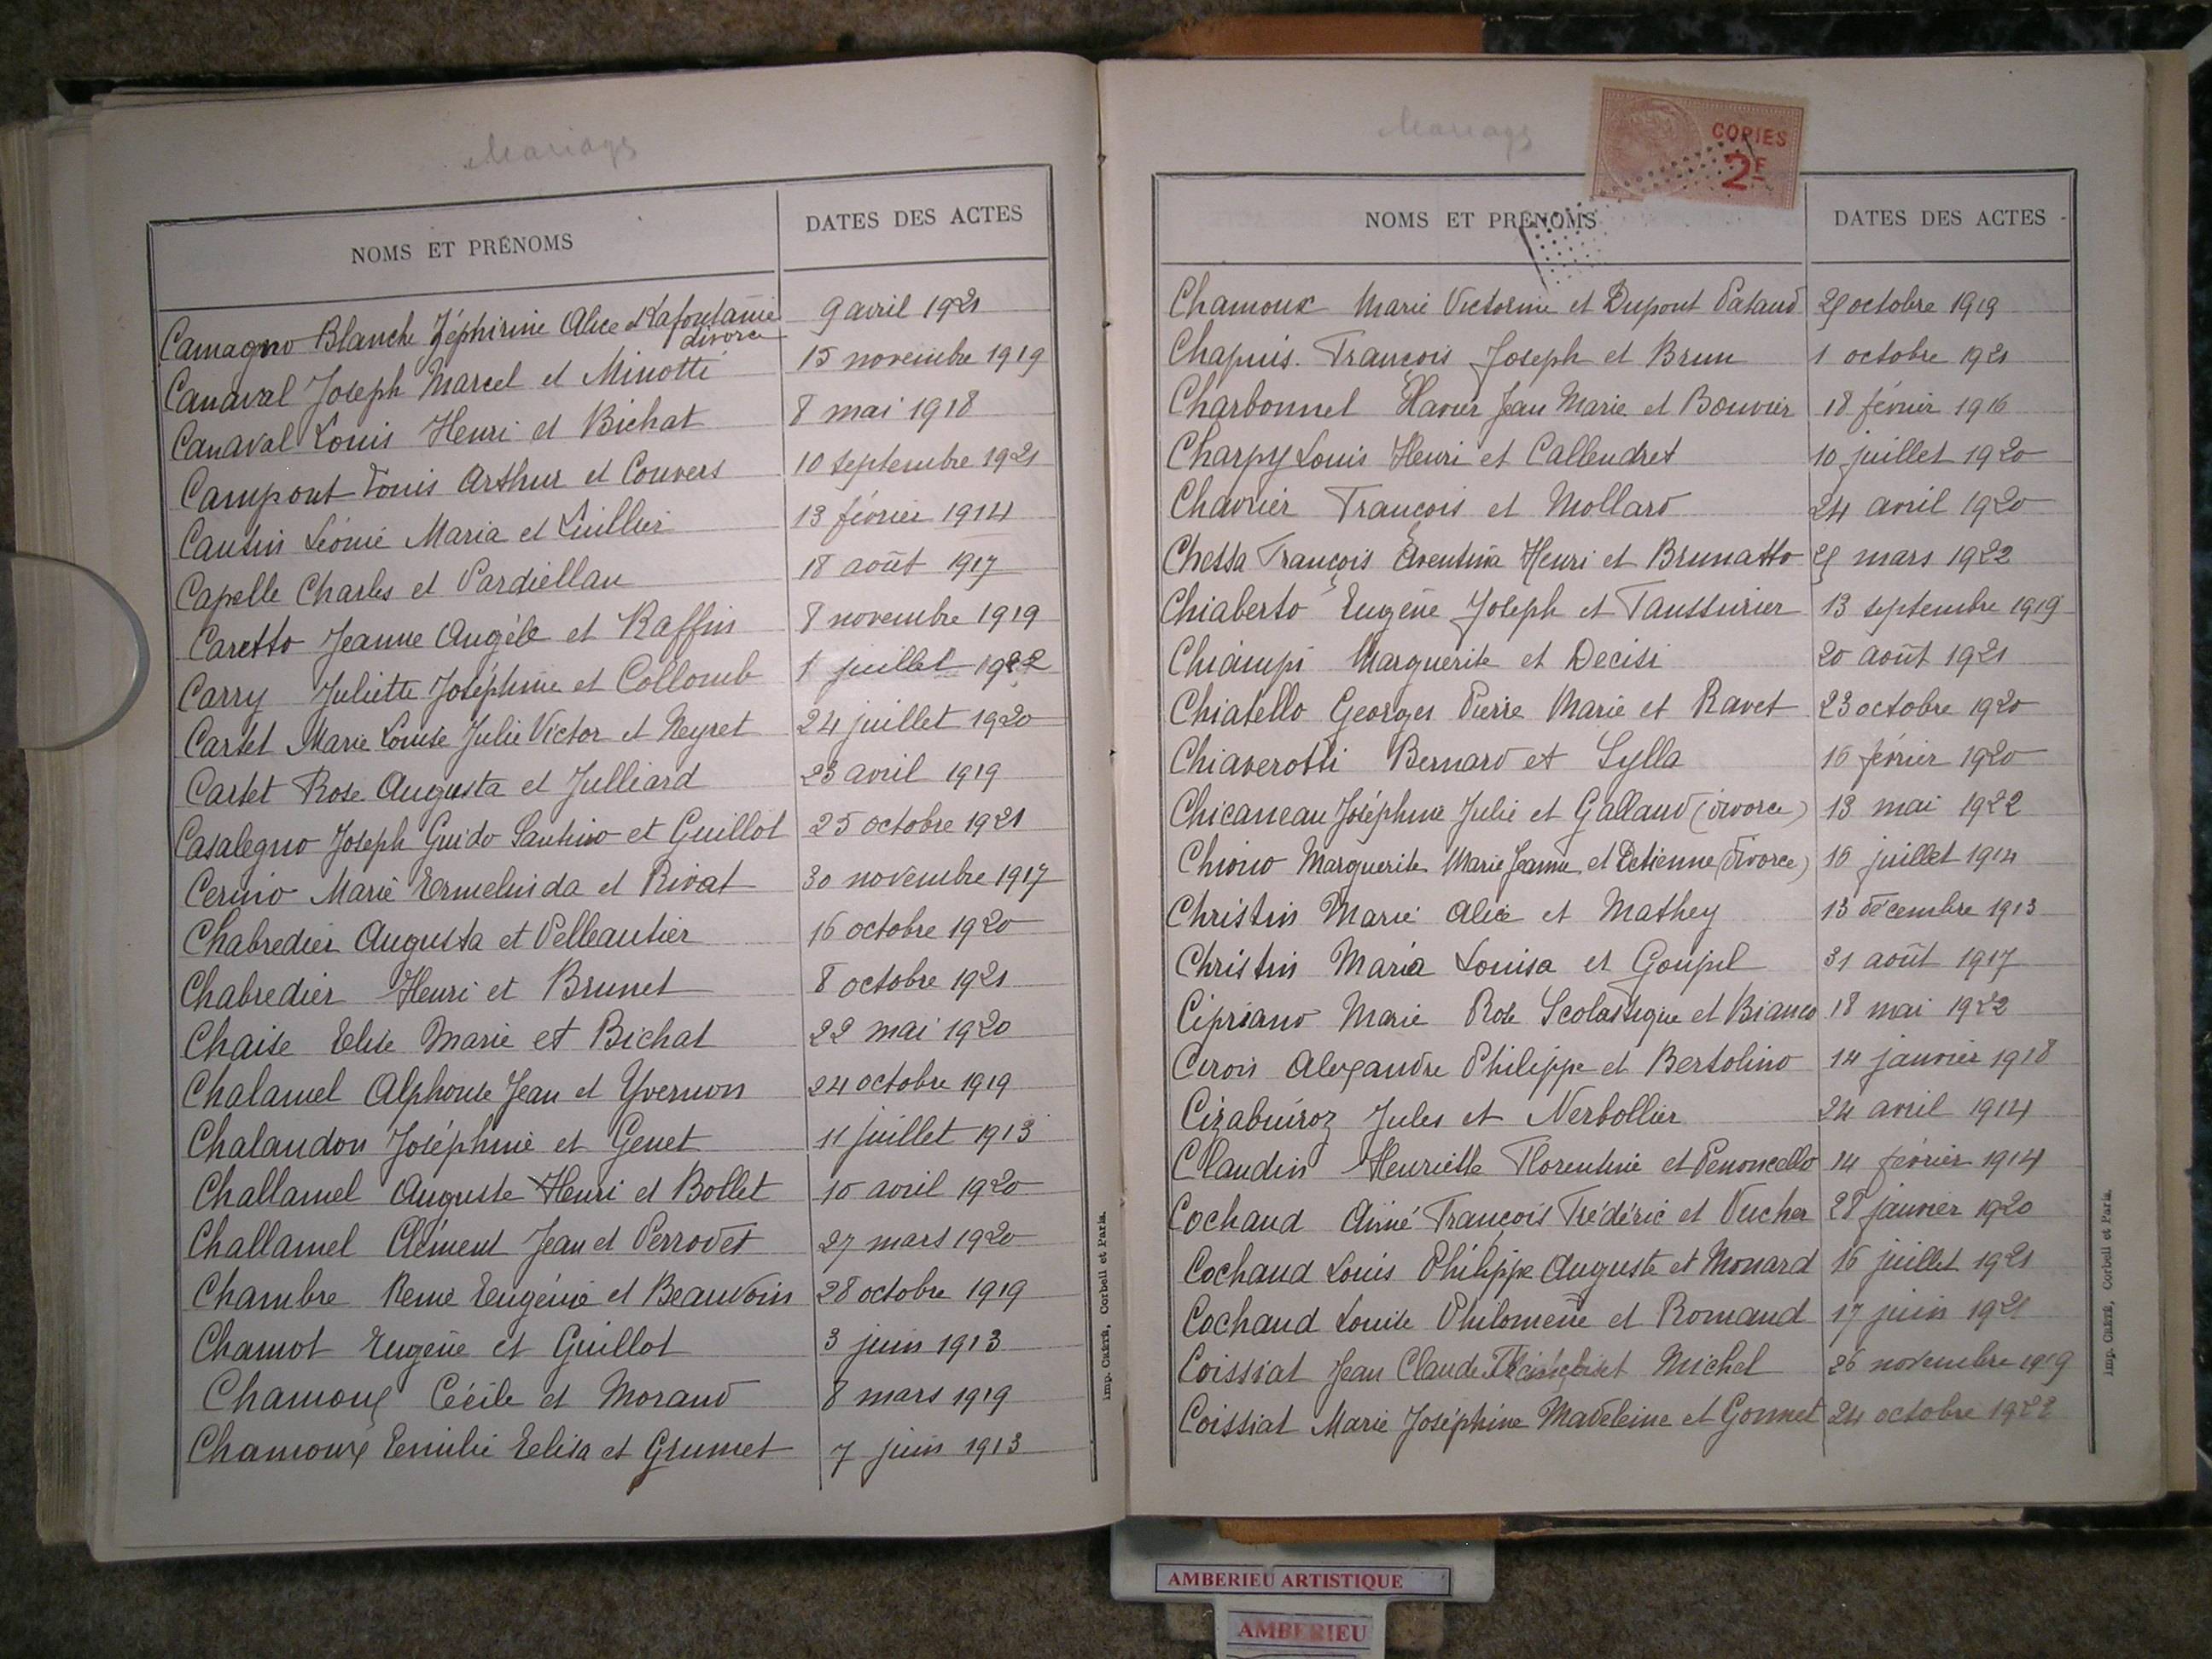 Mariages
NOMS ET PRÉNOMS
DATES DES ACTES
Camagno Blanche Zéphirine Alice et Lafontaine 9 avril 1921
divorce
Canaval Joseph Marcel et Minotti 15 novembre 1919
Canaval Louis Henri et Bichat 8 mai 1918
Campont Louis Arthur et Couvers 10 septembre 1921
Cantin Léonie Maria et Luillier 13 février 1914
Capelle Charles et Pardiellan 18 août 1917
Caretto Jeanne Angèle et Raffin 8 novembre 1919
Carry Juliette Joséphine et Collomb 1 juillet 1922
Cartet Marie Louise Julie Victor et Neyret 24 juillet 1920
Cartet Rose Augusta et Julliard 23 avril 1919
Casalegno Joseph Guido Santino et Guillot 25 octobre 1921
Cerino Marie Ermelinda et Rivat 30 novembre 1917
Chabredier Augusta et Pelleautier 16 octobre 1920
Chabredier Henri et Brunet 8 octobre 1921
Chaise Elise Marie et Bichat 22 mai 1920
Chalamel Alphonse Jean et Yvernon 24 octobre 1919
Chalandon Joséphine et Genet 11 juillet 1913
Challamel Auguste Henri et Bollet 10 avril 1920
Challamel Clément Jean et Perrodet 27 mars 1920
Chambre Reine Eugénie et Beauvoin 28 octobre 1919
Chamot Eugène et Guillot 3 juin 1913
Chamoux Cécile et Morand 8 mars 1919
Chamoux Emilie Elisa et Grumet 7 juin 1913
Imp. CRÉTÉ, Corbeil et Paris.
Mariages
COPIES
2F
NOMS ET PRÉNOMS
DATES DES ACTES
Chamoux Marie Victorine et Dupont Pataud 25 octobre 1919
Chapuis François Joseph et Brun 1 octobre 1921
Charbonnel Xavier Jean Marie et Bouvier 18 février 1916
Charpy Louis Henri et Callendret 10 juillet 1920
Chavrier François et Mollard 24 avril 1920
Chessa François Aventina Henri et Brunatto 25 mars 1922
Chiaberto Eugène Joseph et Taussurier 13 septembre 1919
Chiampi Marguerite et Decisi 20 août 1921
Chiatello Georges Pierre Marie et Ravet 23 octobre 1920
Chiaverotti Bernard et Sylla 16 février 1920
Chicaneau Joséphine Julie et Galland (divorce) 13 mai 1922
Chiono Marguerite Marie Jeanne et Detienne (divorce) 16 juillet 1914
Christin Marie Alice et Mathey 13 décembre 1913
Christin Maria Louisa et Goujel 31 août 1917
Cipriano Marie Rose Scolastique et Bianco 18 mai 1922
Cirois Alexandre Philippe et Bertolino 14 janvier 1918
Cizabuiroz Jules et Nerbollier 24 avril 1914
Claudin Henriette Florentine et Penoncello 14 février 1914
Cochaud Aimé François Frédéric et Vucher 28 janvier 1920
Cochaud Louis Philippe Auguste et Monard 16 juillet 1921
Cochaud Louise Philomène et Romand 17 juin 1921
Coissiat Jean Claude François et Michel 26 novembre 1919
Coissiat Marie Joséphine Madeleine et Gonnet 24 octobre 1922
Imp. CRÉTÉ, Corbeil et Paris.
AMBERIEU ARTISTIQUE
AMBERIEU